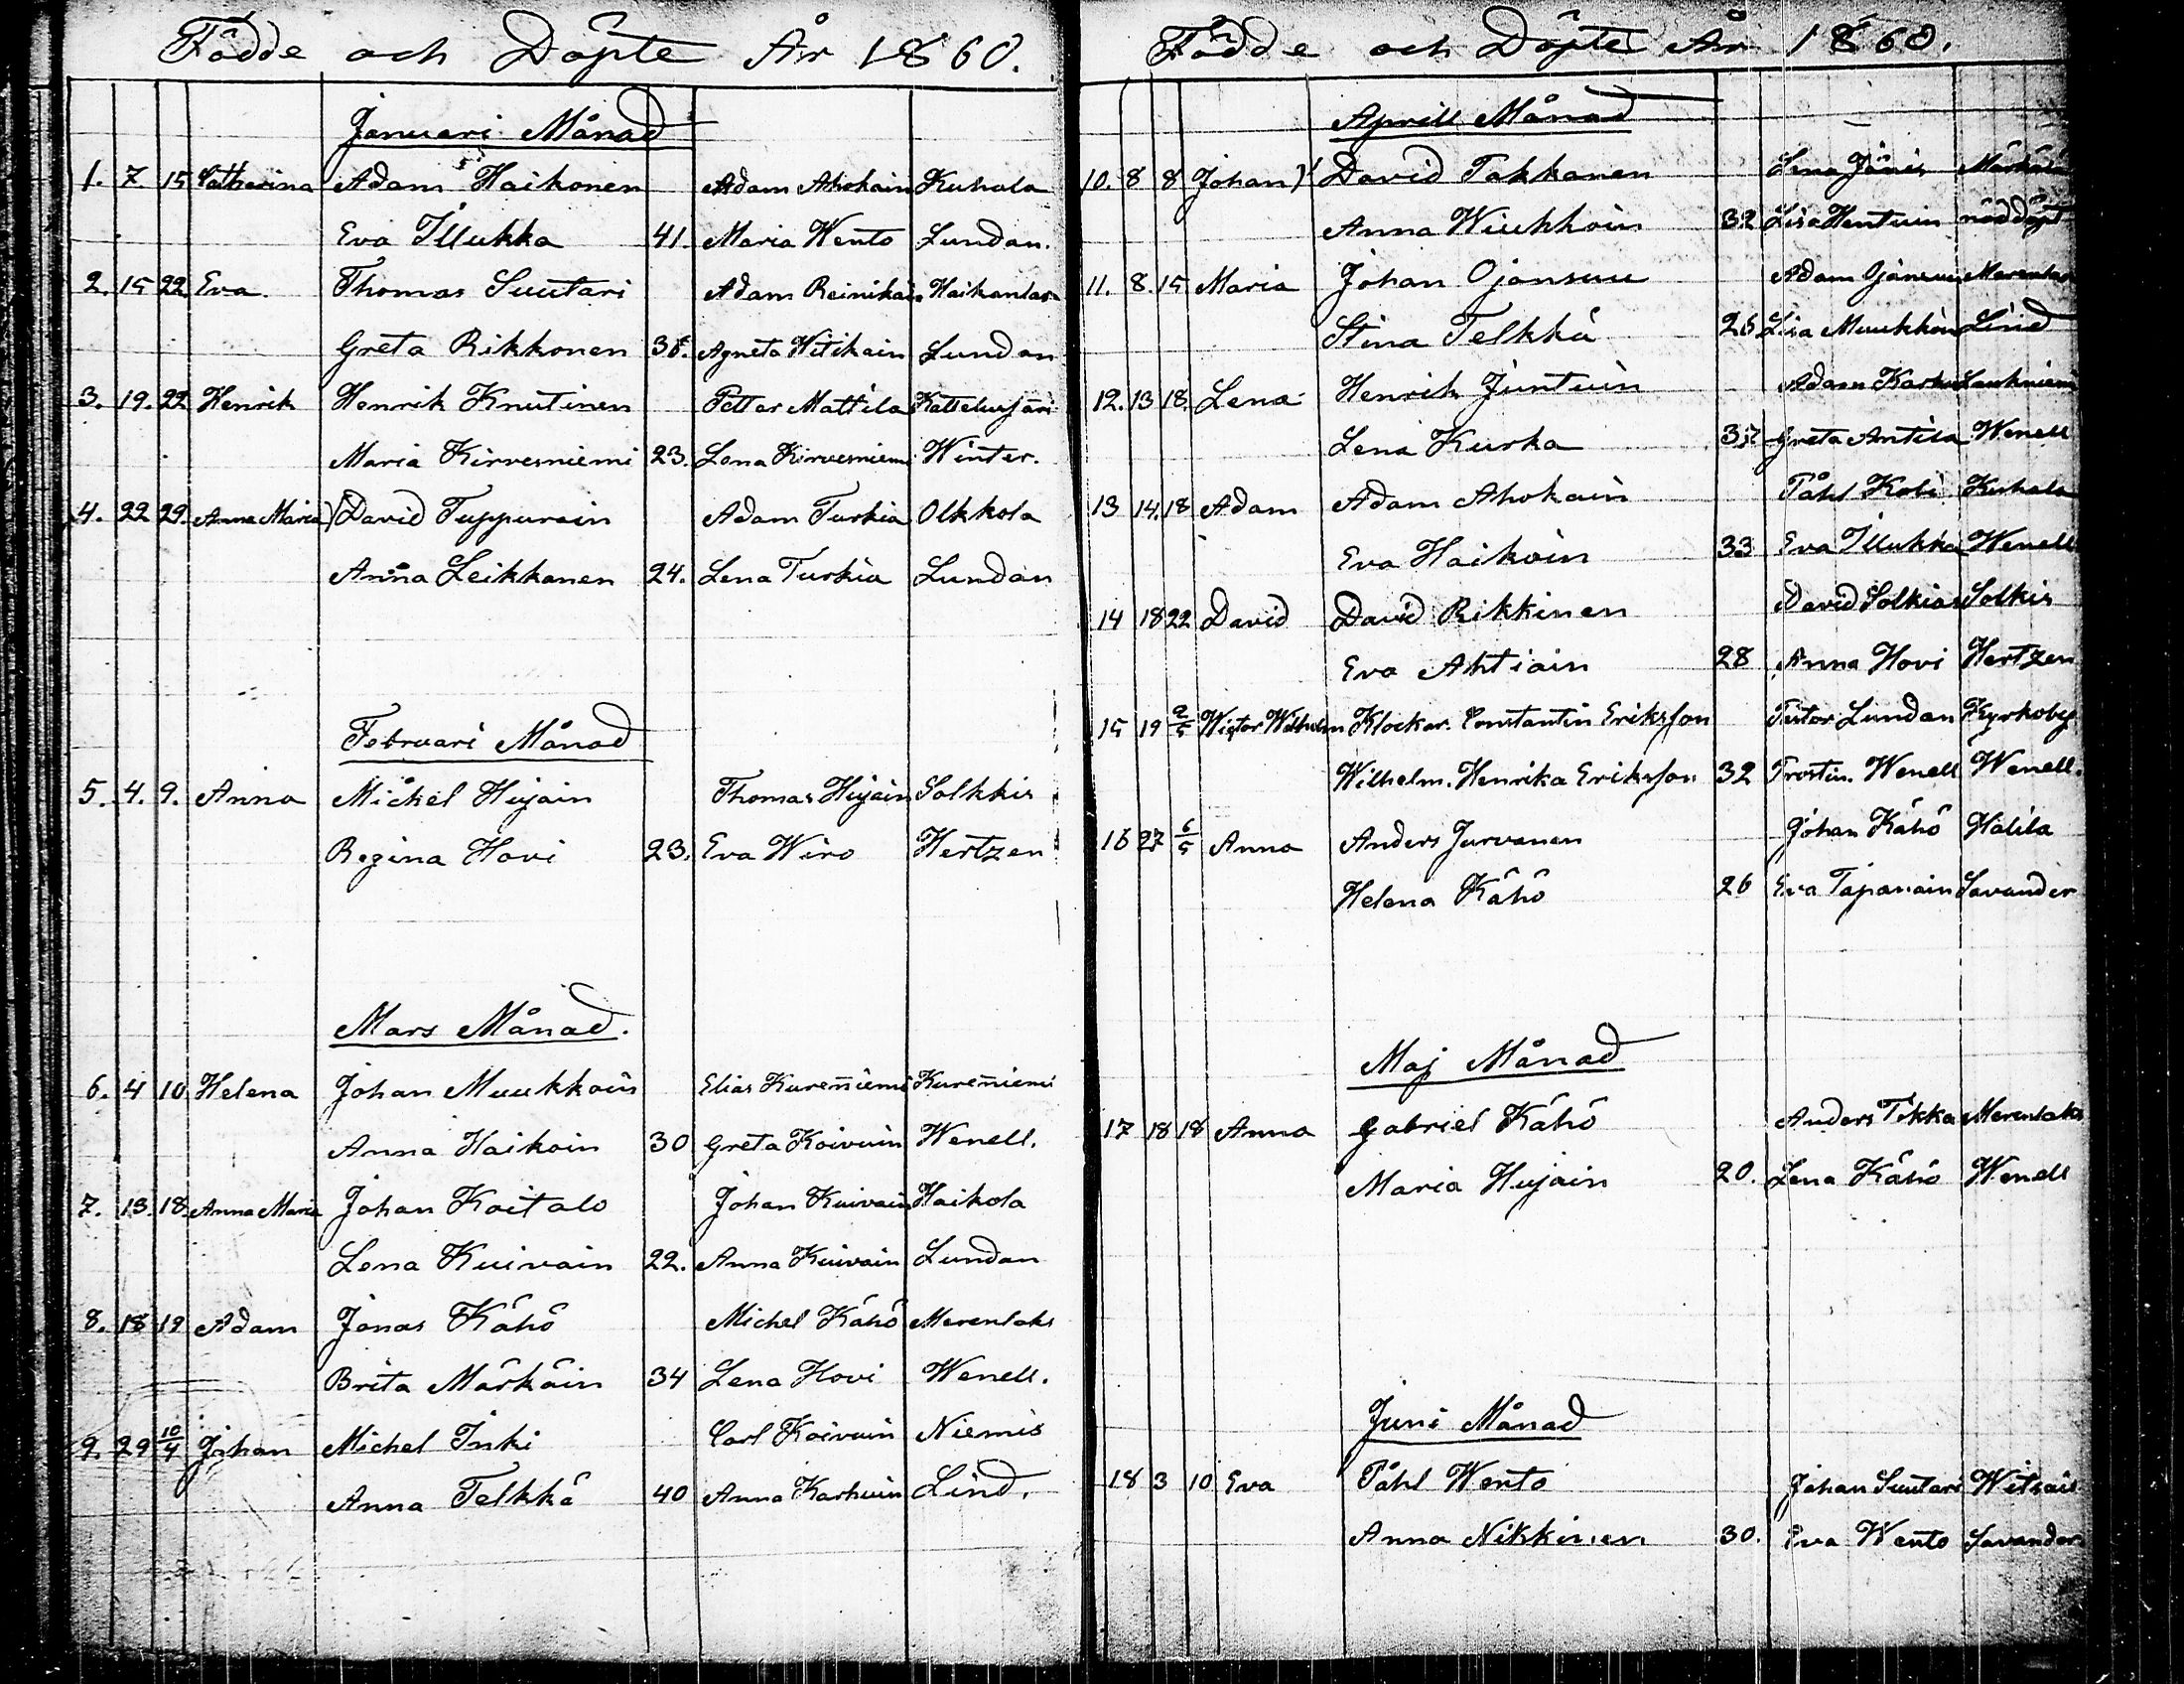 Födde och Döpte År 1860.
Januari Månad
1. 7. 15 Catharina Adam Haikonen Adam Ahokain Kuhala
Eva Illukka 41. Maria Wento Lundan.
2. 15 22 Eva. Thomas Suutari Adam Reinikain Haikanlax
Greta Rikkonen Agneta Witikain Lundan
3. 19. 22 Henrik Henrik Knutinen Petter Mattila Kattelusjärvi
Maria Kirvesniemi 23. Lena Kirvesniemi Winter.
4. 22 29. Anna Maria David Tuppurain Adam Turkia Olkkola
Anna Leikkanen 24. Lena Turkia Lundan
Februari Månad
5. 4. 9. Anna Michel Hujain Thomas Hujain Solkkis
Regina Hovi 23. Eva Wiro Hertzen
Mars Månad.
6. 4 10 Helena Johan Muukkoin Elias Kureniemi Kureniemi
Anna Haikoin 30 Greta Koivuin Wenell.
7. 13. 18. Anna Maria Johan Koitalo Johan Kuivain Haikola
Lena Kuivain 22. Anna Kuivain Lundan
8. 18 19 Adam Jonas Kähö Michel Kähö Merenlaks
Brita Märkäin 34 Lena Hovi Wenell.
9. 29 10/4 Johan Michel Inki Carl Koivuin Niemis
Anna Telkkä 40 Anna Karhuin Lind.
Födde och Döpte År 1860.
Aprill Månad
10. 8 8 Johan David Takkanen Lena Jänis
Anna Wiukkoin 32 Lisa Hentuin nöddöpt
11. 8. 15 Maria Johan Ojansuu Adam Ojansuu Merenlax
Stina Telkkä Lisa Muukkoin Lind
12. 13 18. Lena Henrik Juntuin Adam Karhu Laukniemi
Lena Kurka Greta Antila Wenell
13 14. 18 Adam Adam Ahokain Påhl Kobi Kuhala
Eva Haikoin 33 Eva Illukka Wenell
14 18 22 David David Rikkinen David Solkias Solkis
Eva Ahtiain 28 Anna Hovi Hertzen
15 19 2/5 Wictor Wilhelm Klockar. Constantin Eriksson Pastor Lundan Kyrkoby
Wilhelm. Henrika Eriksson 32 Prostin. Wenell Wenell.
16 27 6/5 Anna Anders Jurvanen Johan Kähö Halila
Helena Kähö 26 Eva Tapanain Savander
Maj Månad
17 18 18 Anna Gabriel Kähö Anders Tikka Merenlaks
Maria Hujain 20. Lena Kähö Wenell
Juni Månad
18 3 10 Eva Påhl Wento Johan Suutari Witsäis
Anna Nikkinen 30. Eva Wento Savander